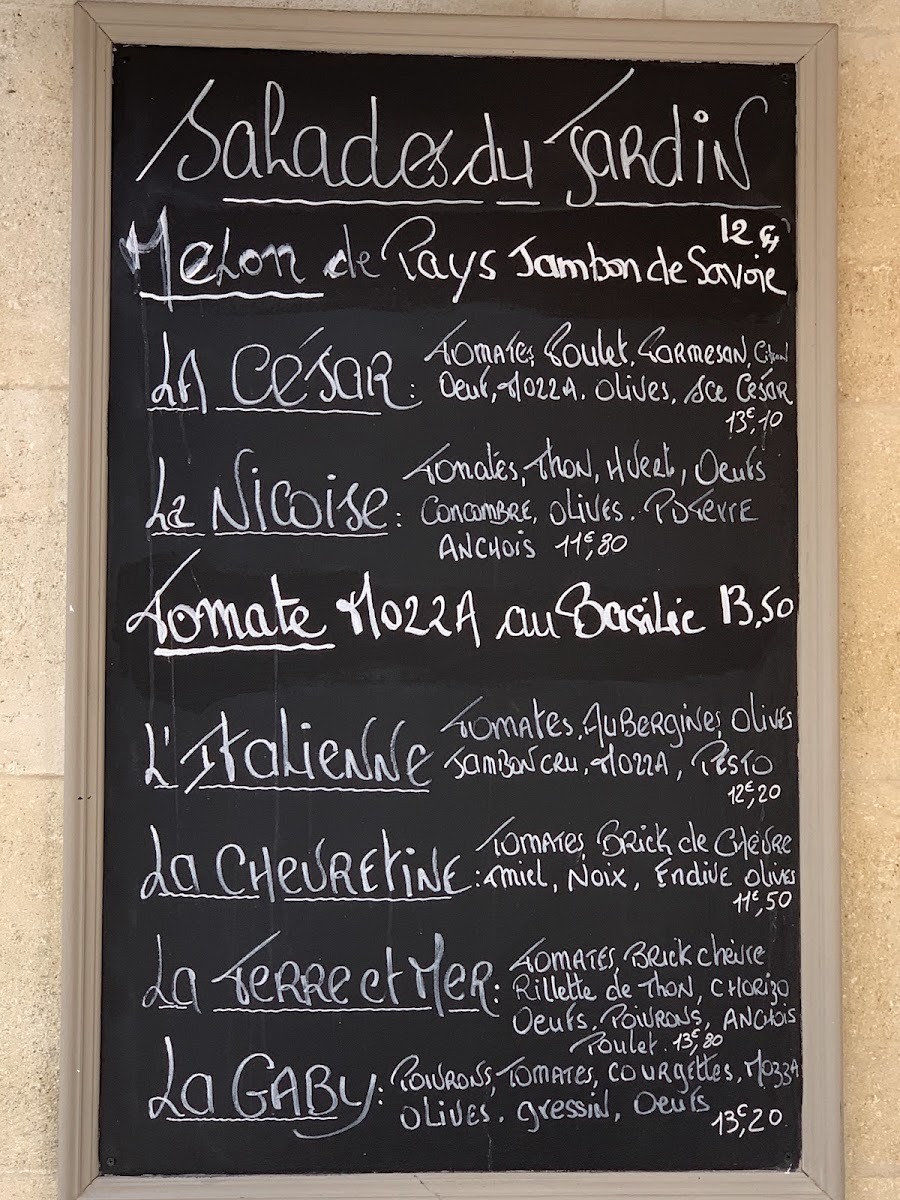 Salades du Jardin
12€
Melon de Pays Jambon de Savoie
LA CÉSAR: Tomates, Poulet, Parmesan, Citron
Oeuf, Mozza. Olives. Sce César
13€,10
La Nicoise: Tomates, Thon, H.Vert, Oeufs
Concombre, Olives. Poivre
ANCHOIS 11€,80
Tomate Mozza au Basilic 13,50
L'Italienne Tomates, Aubergines, Olives
Jambon cru, Mozza, Pesto
12€,20
La Chevretine: Tomates, Brick de Chèvre
miel, Noix, Endive Olives
11€,50
La Terre et Mer: Tomates, Brick chèvre
Rillette de Thon, Chorizo
Oeufs, Poivrons, Anchois
Poulet. 13€,80
La GABY: Poivrons, Tomates, courgettes, Mozza
Olives. gressin, Oeufs
13€,20